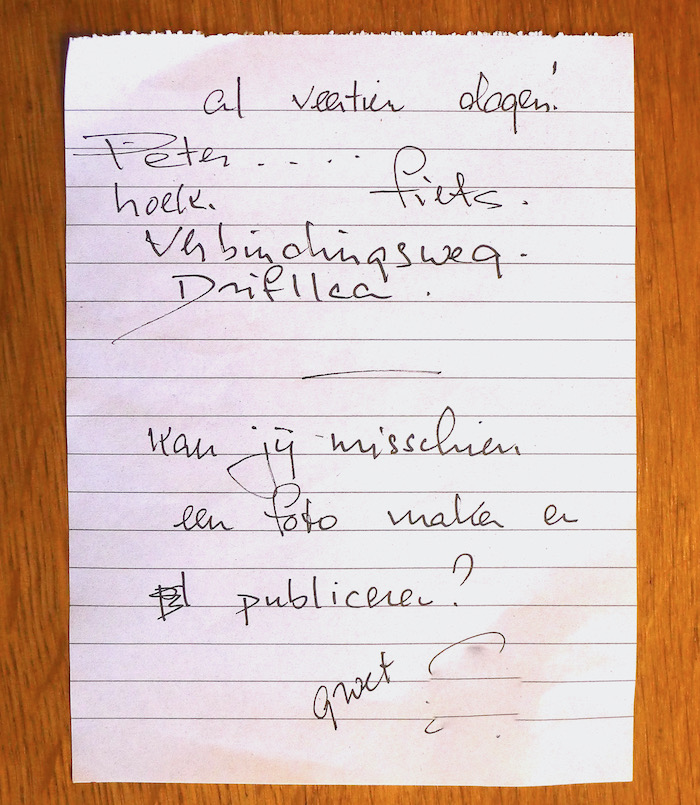 al veertien dagen!
Peter.....
hoek. fiets.
Verbindingsweg.
Driftlaa.
kan jij misschien
een foto maken en
publiceren?
groet